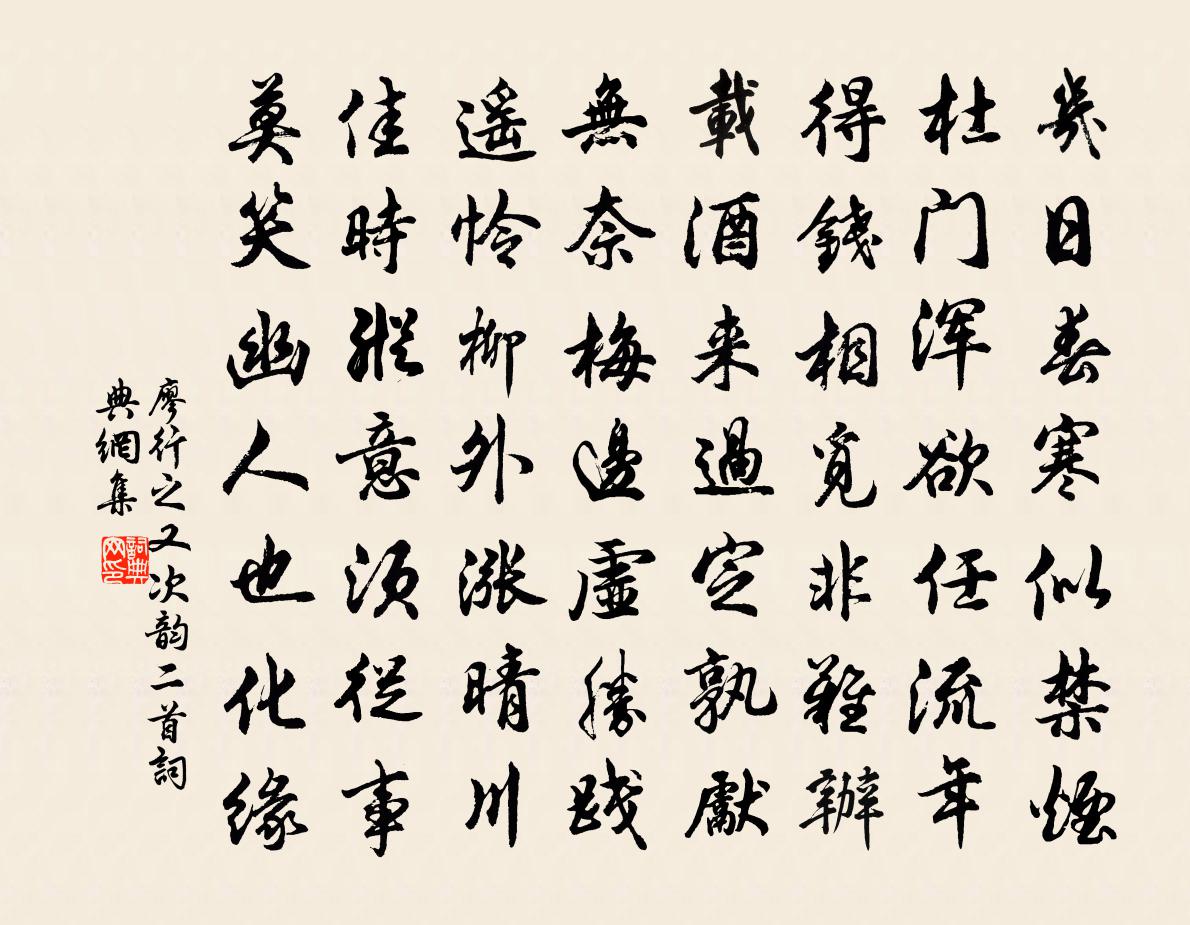 幾日春寒似禁煙
杜門渾欲任流年
得錢相覓非難辦
載酒来過定孰獻
無奈梅邊虛勝踐
遥憐柳外漲晴川
佳時縱意須從事
莫笑幽人也化緣
廖行之又次韵二首詞
典網集
詞典
网印